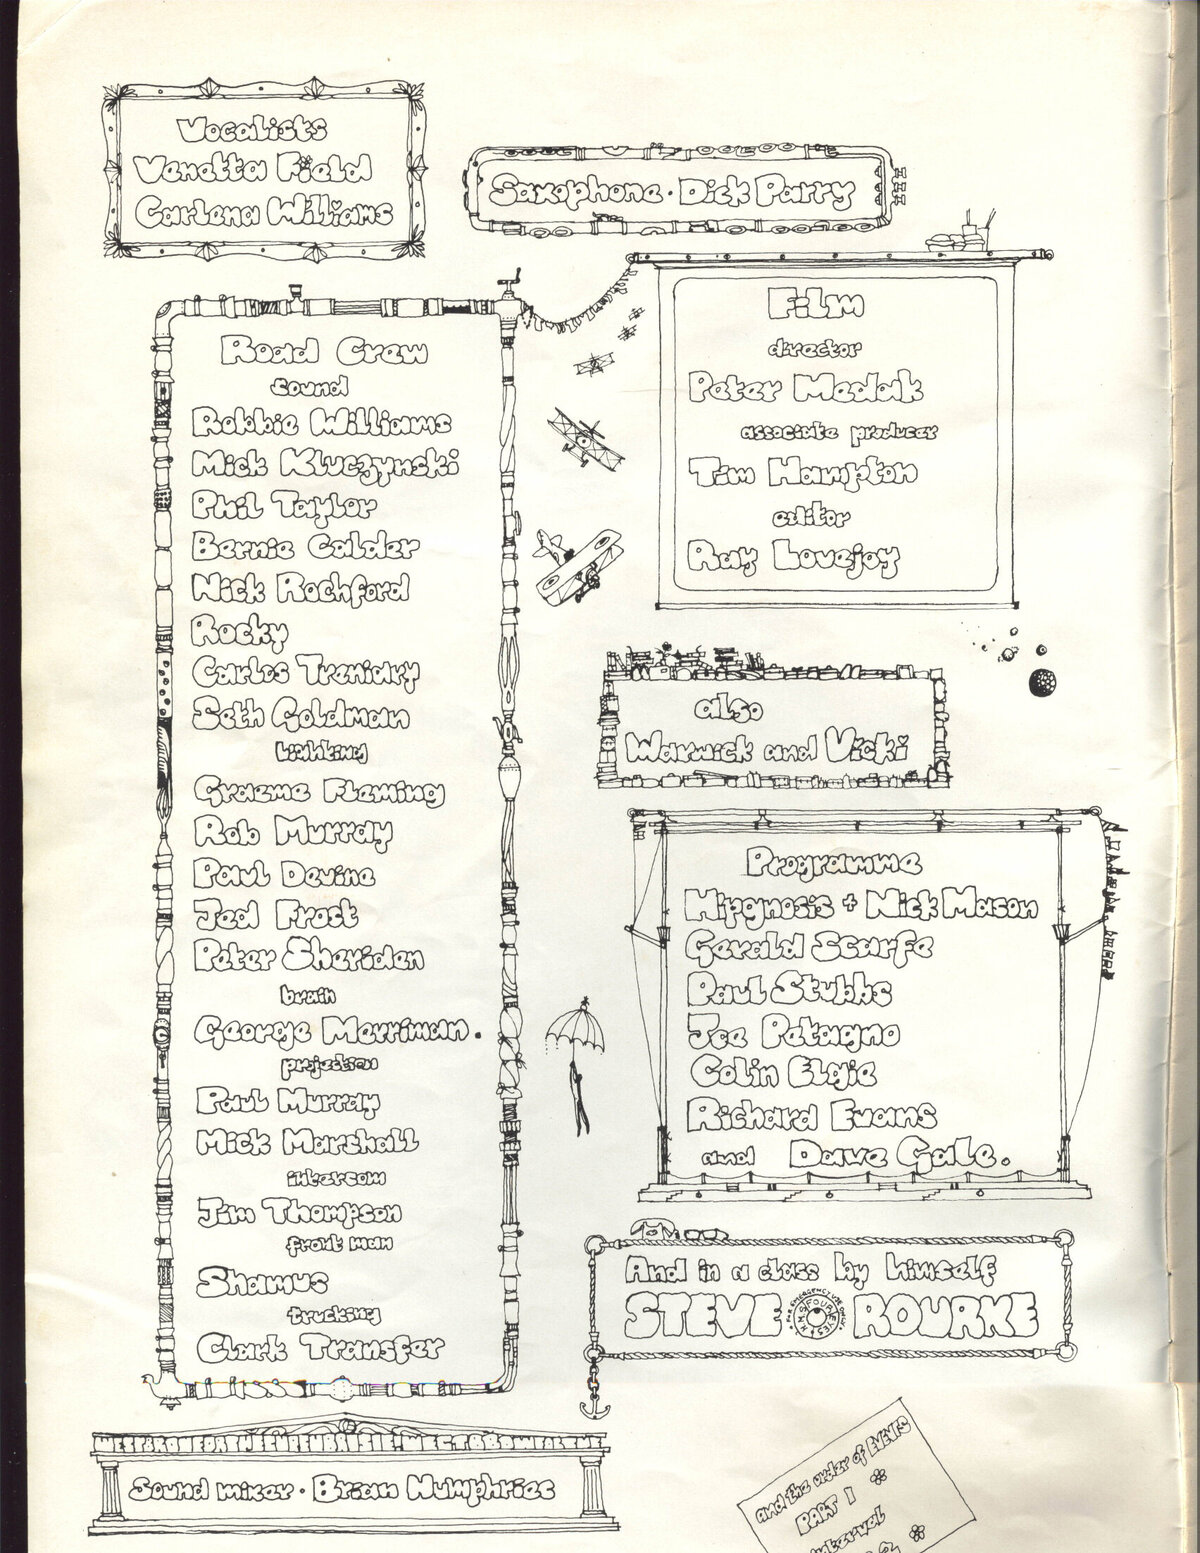 Vocalists
Venetta Field
Carlena Williams
Saxophone · Dick Parry
Road Crew
sound
Robbie Williams
Mick Kluczynski
Phil Taylor
Bernie Calder
Nick Rochford
Rocky
Carlos Treniary
Seth Goldman
lighting
Graeme Fleming
Rob Murray
Paul Devine
Jed Frost
Peter Sheriden
brain
George Merriman.
projection
Paul Murray
Mick Marshall
intercom
Jim Thompson
front man
Shamus
trucking
Clark Transfer
Sound mixer · Brian Humphries
Film
director
Peter Medak
associate producer
Tim Hampton
editor
Ray Lovejoy
also
Warwick and Vicki
Programme
Hipgnosis + Nick Mason
Gerald Scarfe
Paul Stubbs
Joe Petagno
Colin Elgie
Richard Evans
and Dave Gale.
And in a class by himself
STEVE ROURKE
FOR EMERGENCY USE ONLY
H.M.S FOUR EYES
and the order of EVENTS
PART 1